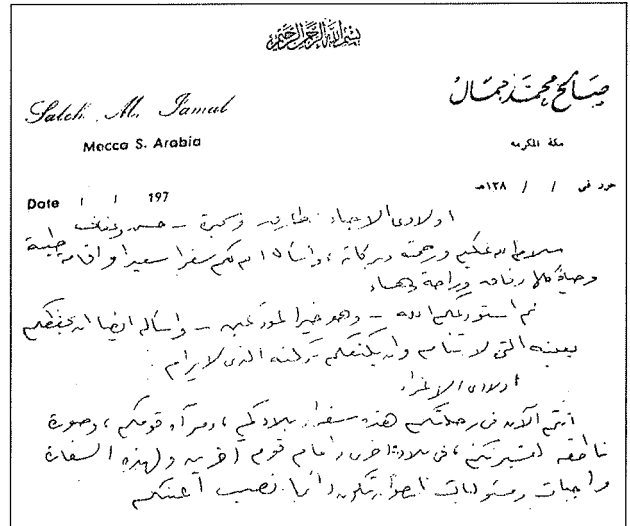 بسم الله الرحمن الرحيم
Saleh. M. Jamal
صالح محمد جمال
Mecca S. Arabia
مكة المكرمه
Date / / 197
حرر فى / / ١٣٨هـ
اولادى الاحباء : طارق وسميرة - حسن وعفاف
سلام الله عليكم ورحمته وبركاته ، واسأل الله لكم سفرا سعيدا واقامة طيبة
وحياة كلها رفاه وراحة وهناء
ثم استودعكم الله - وهو خير المودعين - واسأله ايضا ان يحفظكم
بعينه التى لا تنام وان يكنفكم بركنه الذى لا يرام .
اولادى الاعزاء
انتم الآن فى رحلتكم هذه سفراء بلادكم ، ومرآة قومكم ، وصورة
ناطقة لعشيرتكم ، فى بلاد اخرى وامام قوم آخرين ولهذه السفارة
واجبات ومسئوليات تكون دائما نصب اعينكم